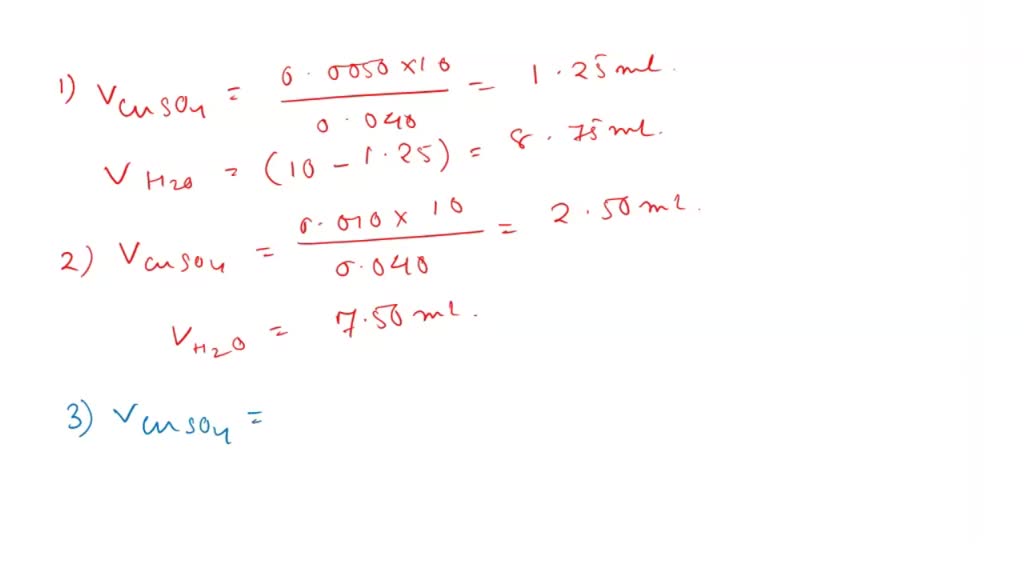 1) VCuSO4 = 0.0050 x 10 / 0.040 = 1.25 ml.
VH2O = (10 - 1.25) = 8.75 ml.
2) VCuSO4 = 0.010 x 10 / 0.040 = 2.50 ml.
VH2O = 7.50 ml.
3) VCuSO4 =